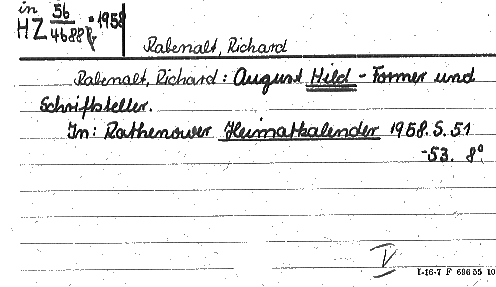 in
HZ 56/4688 - 1958
Rabenalt, Richard
Rabenalt, Richard: August Hild - Former und
Schriftsteller.
In: Rathenower Heimatkalender 1958. S. 51
-53. 8°
V
I-16-7 F 686 55 10